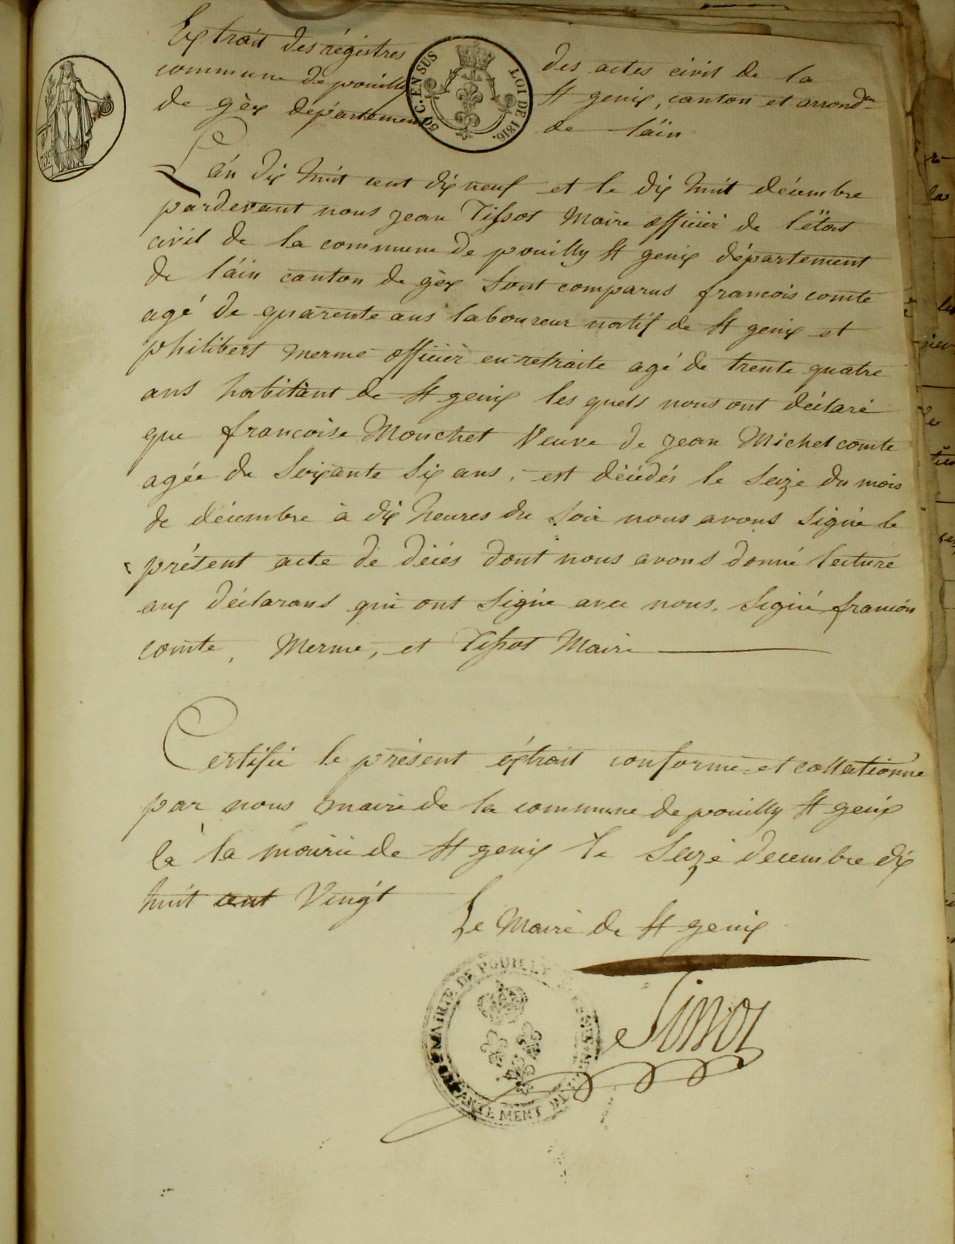 Extrait des régistres des actes civil de la
commune de pouilly St genix, canton et arrond.
de gèx département de l'äin
50 C. EN SUS LOI DE 1816.
L'án dix huit cent dix neuf et le dix huit décembre
pardevant nous jean Tissot Maire officiér de l'ëtat
civil de la commune de pouilly St genix département
de l'äin canton de gèx sont comparus francois comte
agé de quarente ans laboureur natif de St genix et
philibert merme officiér en retraite agé de trente quatre
ans habitant de St genix les quels nous ont déclaré
que francoise Mouchet Veuve de jean Michel comte
agée de soixante six ans, est décédés le seize du mois
de décembre à dix heures du soir nous avons signé le
présent acte de décés dont nous avons donné lecture
aux déclarans qui ont signé avec nous. signé francois
comte, Merme, et Tissot Maire
Certifié le présent éxtrait conforme et collationné
par nous maire de la commune de pouilly St genix
là la mairie de St genix le seize decembre dix
huit cent Vingt
Le Maire de St genix
Tissot
MAIRIE DE POUILLY DÉPARTEMENT DE